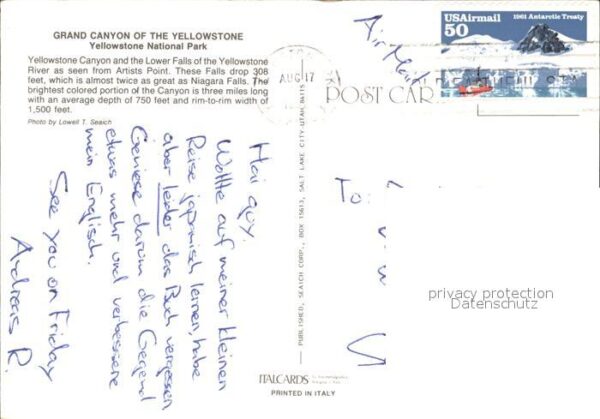 GRAND CANYON OF THE YELLOWSTONE
Yellowstone National Park
Yellowstone Canyon and the Lower Falls of the Yellowstone
River as seen from Artists Point. These Falls drop 308
feet, which is almost twice as great as Niagara Falls. The
brightest colored portion of the Canyon is three miles long
with an average depth of 750 feet and rim-to-rim width of
1,500 feet.
Photo by Lowell T. Seaich
Hai guy.
Wollte auf meiner kleinen
Reise japanisch lernen, habe
aber leider das Buch vergessen
Geniese darum die Gegend
etwas mehr und verbessere
mein Englisch.
See you on Friday
Andreas R.
PUBLISHED, SEAICH CORP., BOX 15613, SALT LAKE CITY UTAH 84115
ITALCARDS
PRINTED IN ITALY
POST CAR
AUG 17
Air Mail
USAirmail
50
1961 Antarctic Treaty
To:
privacy protection
Datenschutz